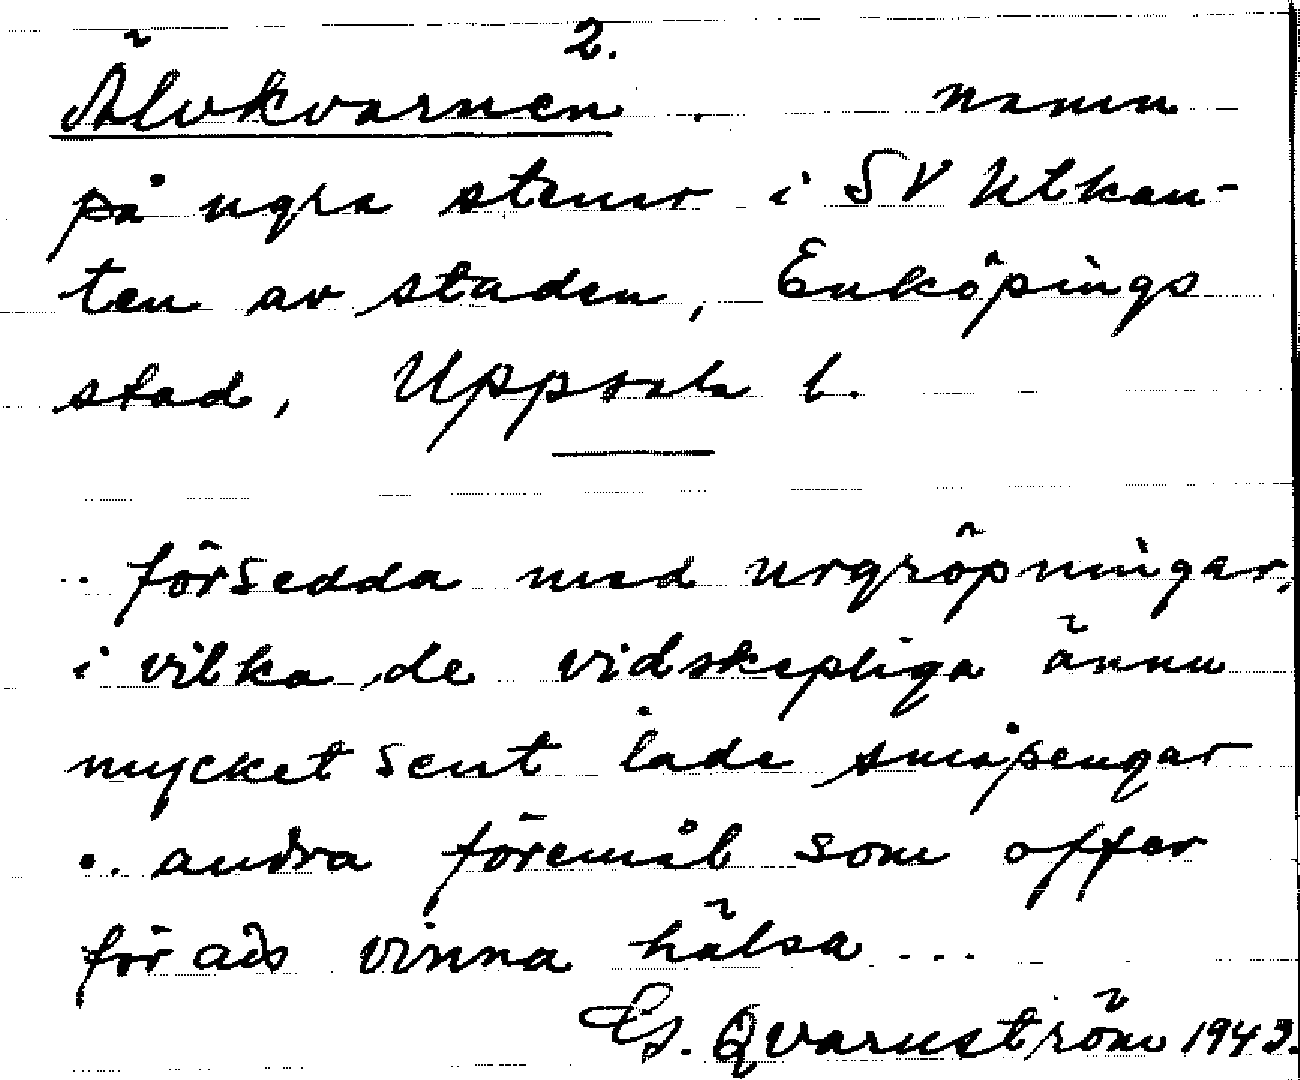 2.
Älvkvarnen . namn
på ngra stenar i SV Utkan-
ten av staden, Enköpings
stad, Uppsala l.
.. försedda med urgröpningar,
i vilka de vidskepliga ännu
mycket sent lade småpengar
o. andra föremål som offer
för att vinna hälsa ...
G. Qvarnström 1943.